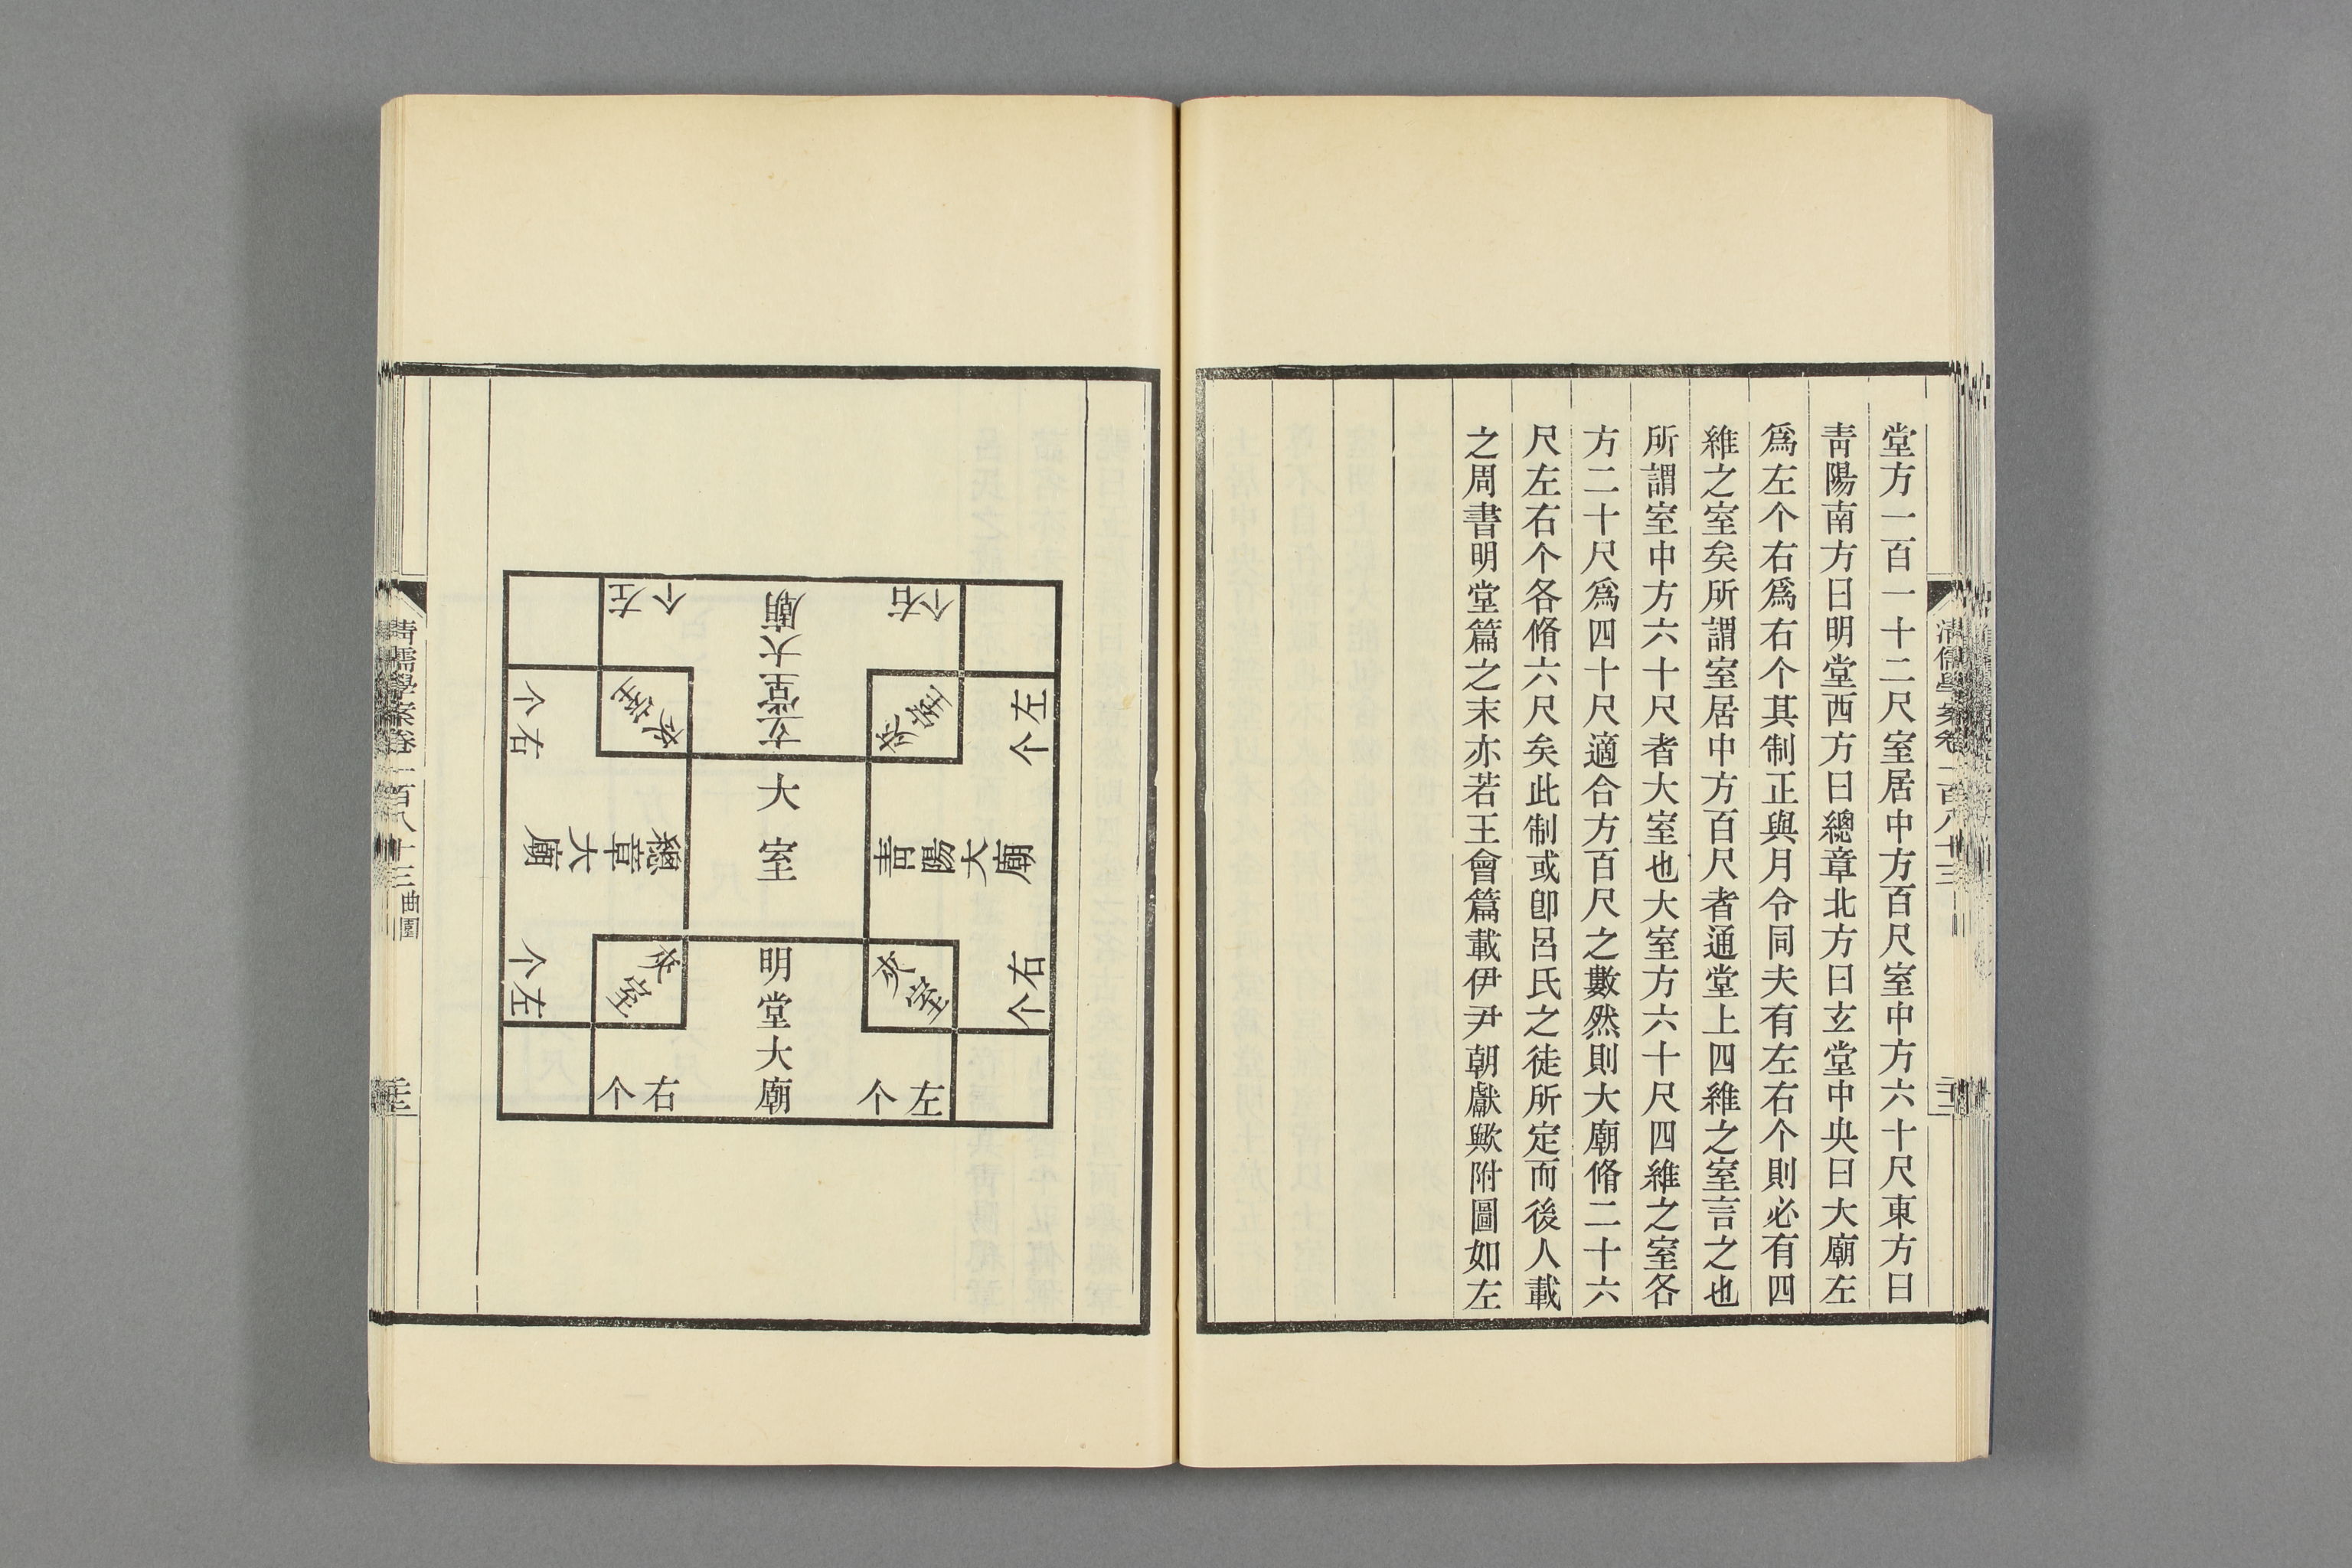 堂方一百一十二尺室居中方百尺室中方六十尺東方曰
靑陽南方曰明堂西方曰總章北方曰玄堂中央曰大廟左
爲左个右爲右个其制正與月令同夫有左右个則必有四
維之室矣所謂室居中方百尺者通堂上四維之室言之也
所謂室中方六十尺者大室也大室方六十尺四維之室各
方二十尺爲四十尺適合方百尺之數然則大廟脩二十六
尺左右个各脩六尺矣此制或卽呂氏之徒所定而後人載
之周書明堂篇之末亦若王會篇載伊尹朝獻歟附圖如左
淸儒學案卷一百八十三
左个
玄堂大廟
右个
右个
夾室
夾室
左个
總章大廟
大室
靑陽大廟
左个
夾室
夾室
右个
右个
明堂大廟
左个
淸儒學案卷一百八十三 曲園